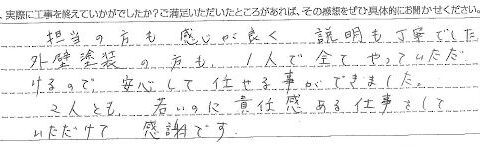 、実際に工事を終えていかがでしたか？ご満足いただいたところがあれば、その感想をぜひ具体的にお聞かせください。
担当の方も感じが良く 説明も丁寧でした
外壁塗装の方も、1人で全てやっていただ
けるので、安心して任せる事ができました。
2人とも、若いのに責任感ある仕事をして
いただけて 感謝です.